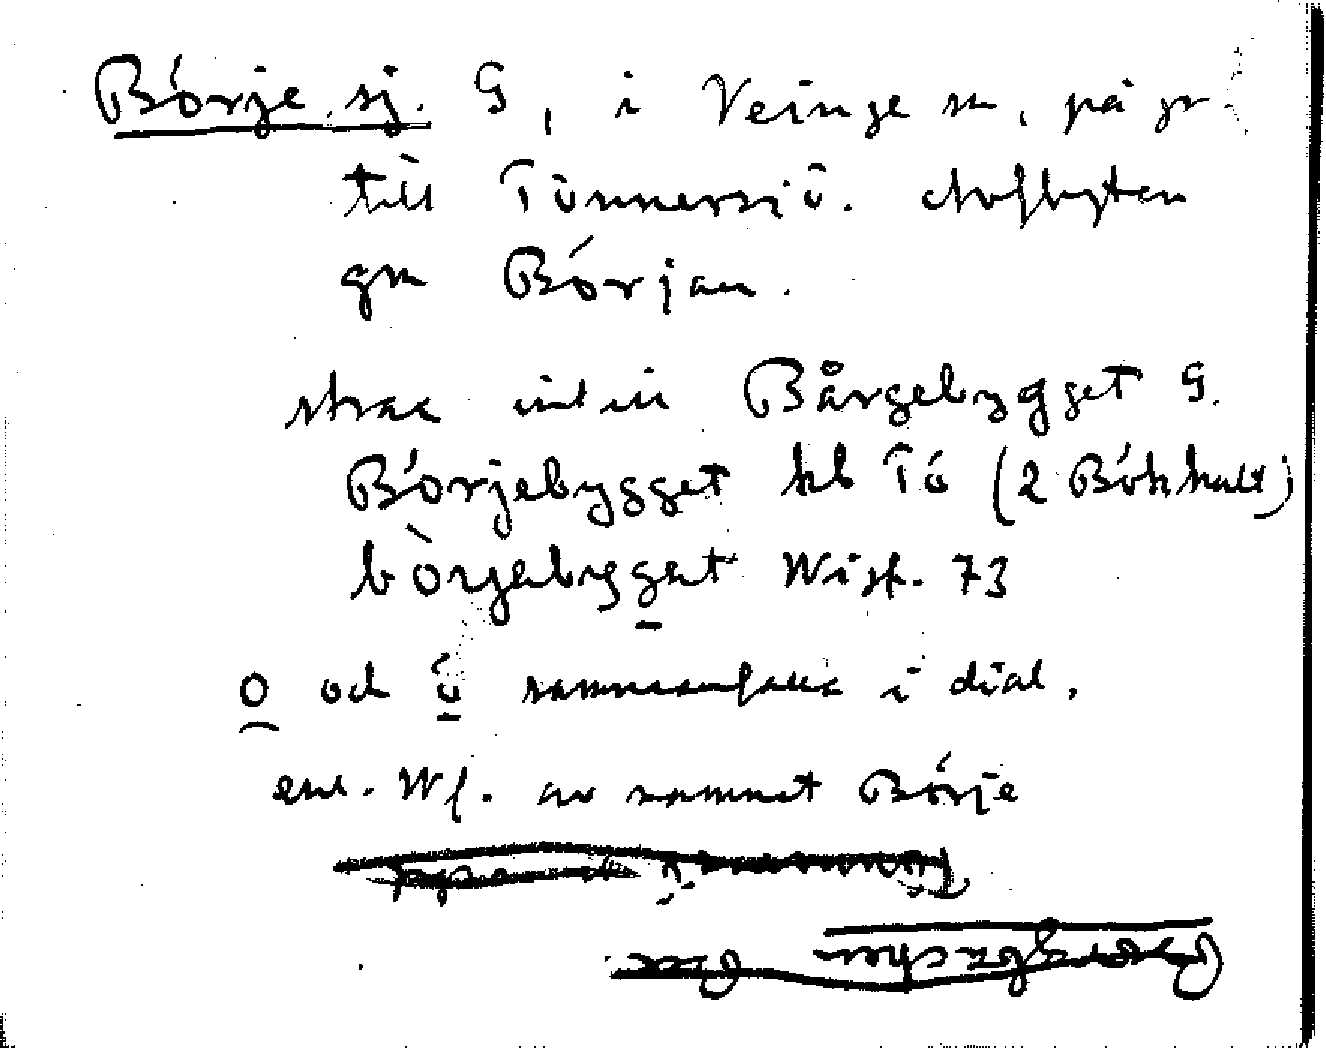 Börje sj. G, i Veinge sn, på gr
till Tönnersjö. Avflyten
gm Början.
strax intill Bårgebygget G.
Börjebygget hb Tö (2 Bökhult)
börjebygget Wisf. 73
o och ö sammanfalla i dial.
enl. Wf. av namnet Börje